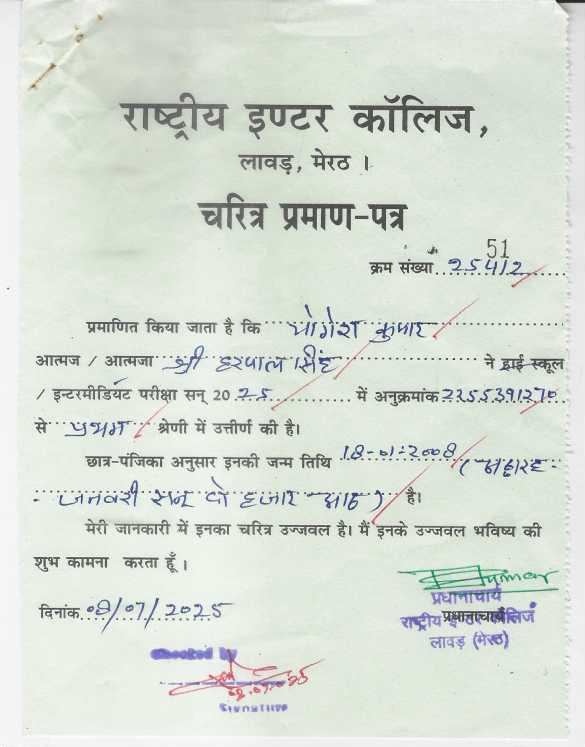 राष्ट्रीय इण्टर कॉलिज,
लावड़, मेरठ ।
चरित्र प्रमाण-पत्र
51
क्रम संख्या..25412......
प्रमाणित किया जाता है कि योगेश कुमार
आत्मज / आत्मजा श्री हरपाल सिंह ने हाई स्कूल
/ इन्टरमीडियेट परीक्षा सन् 20 25 में अनुक्रमांक 2255391270
से प्रथम श्रेणी में उत्तीर्ण की है।
छात्र-पंजिका अनुसार इनकी जन्म तिथि 18-01-2008 (अट्ठारह
जनवरी सन् दो हजार आठ) है।
मेरी जानकारी में इनका चरित्र उज्जवल है। मैं इनके उज्जवल भविष्य की
शुभ कामना करता हूँ ।
प्रधानाचार्य
दिनांक 09/07/2025
प्रधानाचार्य
राष्ट्रीय इण्टर कॉलिज
लावड़ (मेरठ)
Checked by
Signature